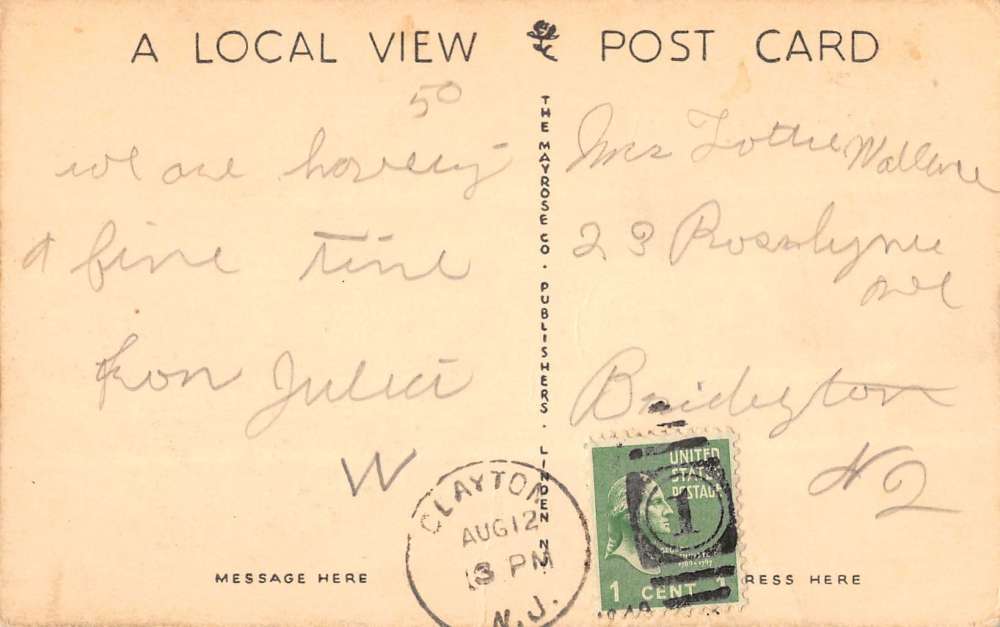 A LOCAL VIEW POST CARD
50
we are haveing
a fine time
from Juliet
W
THE MAYROSE CO. PUBLISHERS. LINDEN, N.J.
Mrs Lottie Wallace
23 Rosslynne
ave
Bridgeton
NJ
CLAYTON
AUG 12
3 PM
N.J.
UNITED
STATES
POSTAGE
1
1789-1797
1 CENT 1
MESSAGE HERE
RESS HERE